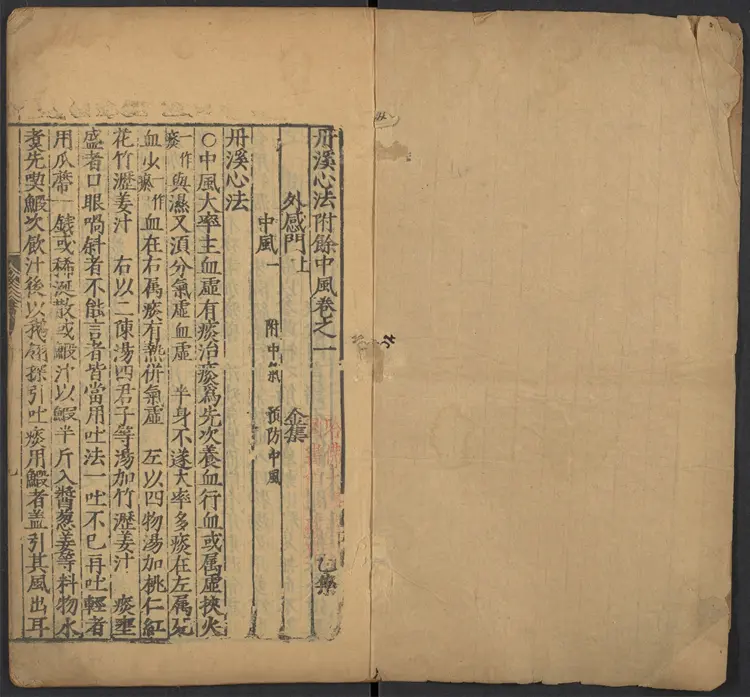 丹溪心法附餘中風卷之一
外感門上 金集 乙集
中風一 附中氣 預防中風
丹溪心法
○中風大率主血虛有痰治痰爲先次養血行血或属虛挾火
一作痰與濕又湏分氣虛血虛 半身不遂大率多痰在左属死
血少一作瘀血在右属痰有熱併氣虛 左以四物湯加桃仁紅
花竹瀝姜汁 右以二陳湯四君子等湯加竹瀝姜汁 痰壅
盛者口眼喎斜者不能言者皆當用吐法一吐不已再吐輕者
用瓜蒂一錢或稀涎散或鰕汁以鰕半斤入醬葱姜等料物水
煑先喫鰕次飲汁後以鵝翎探引吐痰用鰕者盖引其風出耳